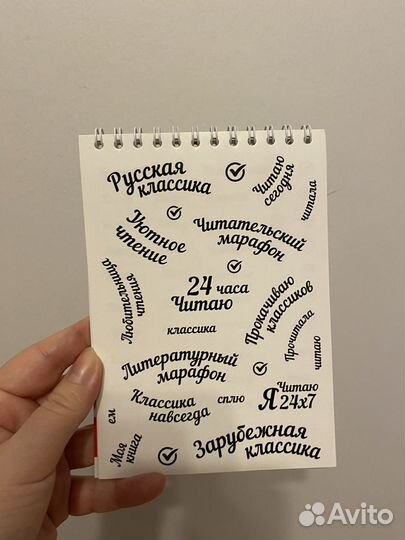 Русская
классика
Читаю
сегодня
читала
Уютное
чтение
Читательский
марафон
Любительница
чтения
24 часа
Читаю
Прокачиваю
классиков
классика
Прочитала
читаю
Литературный
марафон
Классика
навсегда
сплю
Я Читаю
24х7
ем
Моя
книга
Зарубежная
классика
Avito